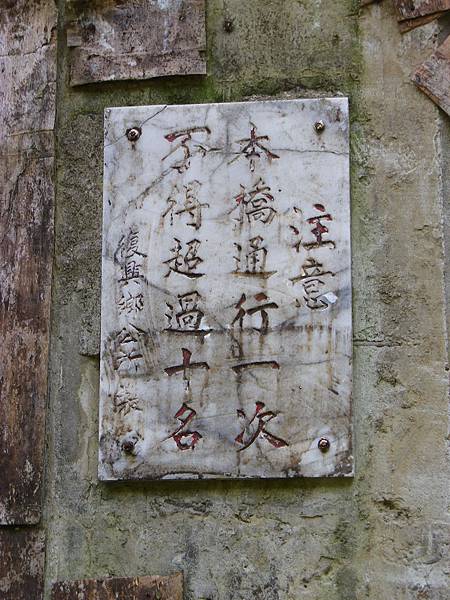 注意
本橋通行一次
不得超過十名
復興鄉公所製